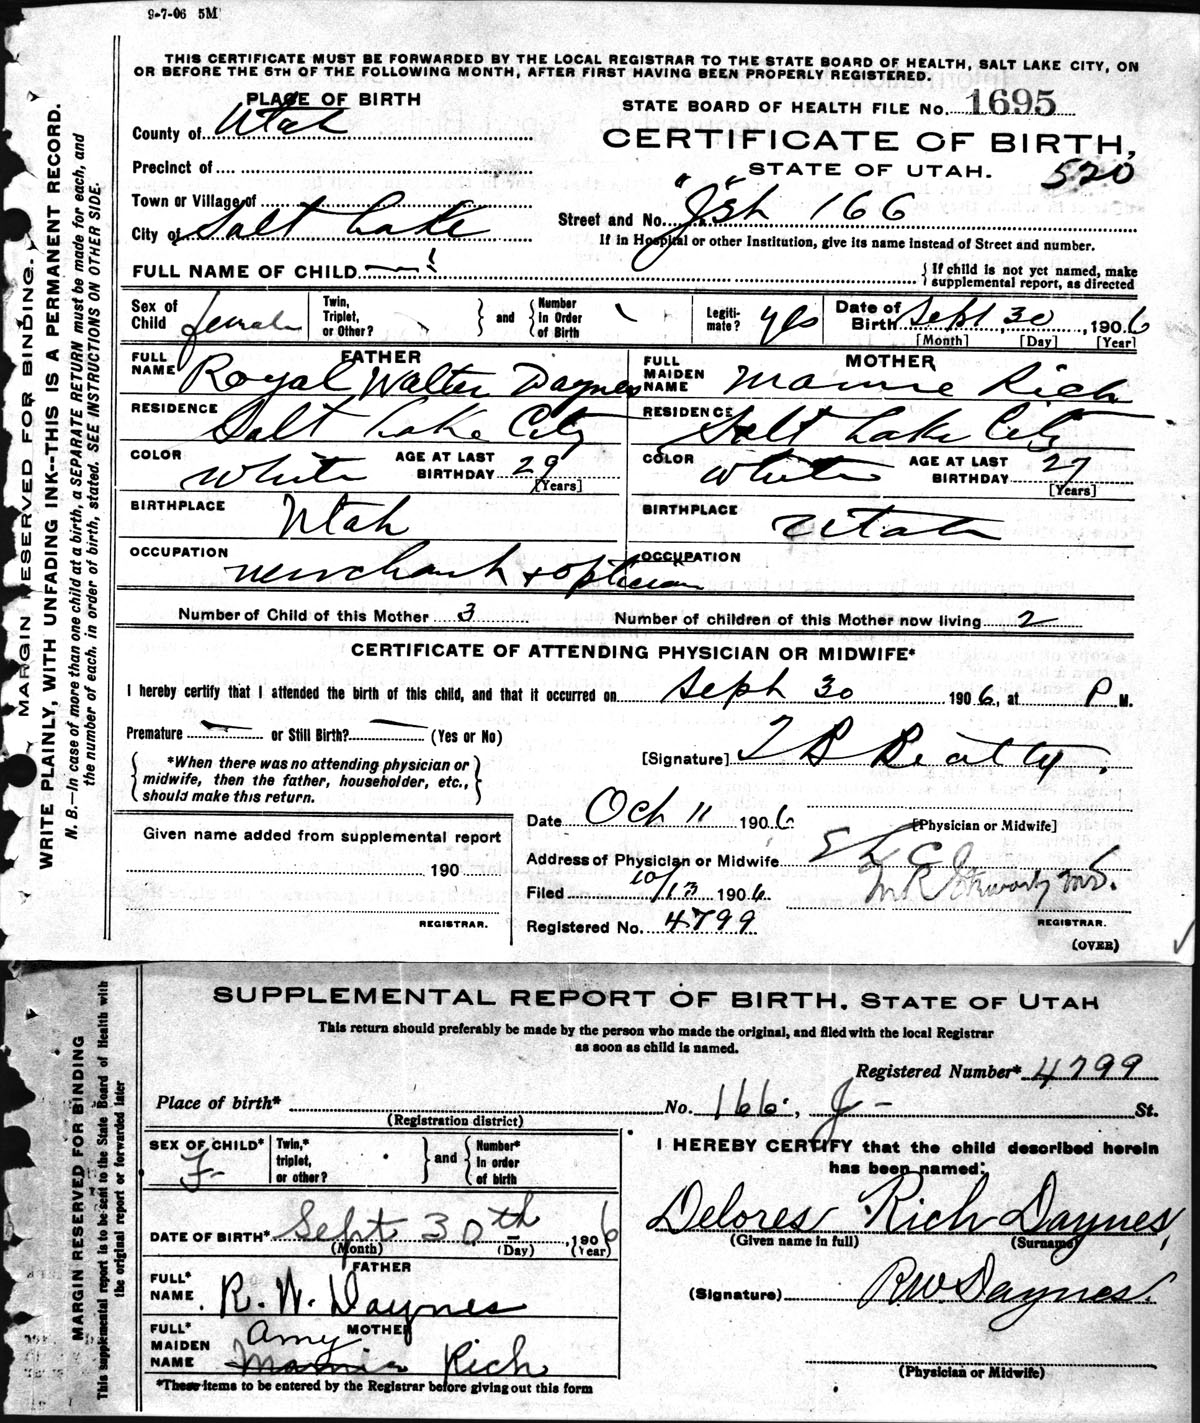 9-7-06 5M
THIS CERTIFICATE MUST BE FORWARDED BY THE LOCAL REGISTRAR TO THE STATE BOARD OF HEALTH, SALT LAKE CITY, ON
OR BEFORE THE 5TH OF THE FOLLOWING MONTH, AFTER FIRST HAVING BEEN PROPERLY REGISTERED.
MARGIN RESERVED FOR BINDING.
WRITE PLAINLY, WITH UNFADING INK--THIS IS A PERMANENT RECORD.
N. B.—In case of more than one child at a birth, a SEPARATE RETURN must be made for each, and
the number of each, in order of birth, stated. SEE INSTRUCTIONS ON OTHER SIDE.
PLACE OF BIRTH
County of Utah
Precinct of
Town or Village of
City of Salt Lake
STATE BOARD OF HEALTH FILE No. 1695
CERTIFICATE OF BIRTH,
STATE OF UTAH. 520
Street and No. "J" St 166
If in Hospital or other Institution, give its name instead of Street and number.
FULL NAME OF CHILD
{ If child is not yet named, make
supplemental report, as directed
Sex of Child female
Twin, Triplet, or Other? } and { Number in Order of Birth
Legiti-mate? yes
Date of Birth Sept, 30, 1906
[Month] [Day] [Year]
FATHER
FULL NAME Royal Walter Daynes
RESIDENCE Salt Lake City
COLOR White AGE AT LAST BIRTHDAY 29 [Years]
BIRTHPLACE Utah
OCCUPATION merchant & optician
MOTHER
FULL MAIDEN NAME Mamie Rich
RESIDENCE Salt Lake City
COLOR White AGE AT LAST BIRTHDAY 27 [Years]
BIRTHPLACE Utah
OCCUPATION
Number of Child of this Mother 3 Number of children of this Mother now living 2
CERTIFICATE OF ATTENDING PHYSICIAN OR MIDWIFE*
I hereby certify that I attended the birth of this child, and that it occurred on Sept 30 1906, at P M.
Premature — or Still Birth? — (Yes or No)
{ *When there was no attending physician or
midwife, then the father, householder, etc.,
should make this return. }
[Signature] T B Beatty.
[Physician or Midwife]
Date Oct 11 1906
Address of Physician or Midwife S L C
Filed 10/13 1906
Registered No. 4799
REGISTRAR.
(OVER)
Given name added from supplemental report
190
REGISTRAR.
MARGIN RESERVED FOR BINDING
This supplemental report is to be sent to the State Board of Health with
the original report or forwarded later
SUPPLEMENTAL REPORT OF BIRTH, STATE OF UTAH
This return should preferably be made by the person who made the original, and filed with the local Registrar
as soon as child is named.
Registered Number* 4799
Place of birth* No. 166, J - St.
(Registration district)
SEX OF CHILD* F-
Twin,* triplet, or other? } and { Number* in order of birth
DATE OF BIRTH* Sept 30th, 1906
(Month) (Day) (Year)
FATHER
FULL* NAME R. W. Daynes
MOTHER
FULL* MAIDEN NAME Amy Mamie Rich
*These items to be entered by the Registrar before giving out this form
I HEREBY CERTIFY that the child described herein
has been named:
Delores Rich Daynes,
(Given name in full) (Surname)
(Signature) R W Daynes.
(Physician or Midwife)